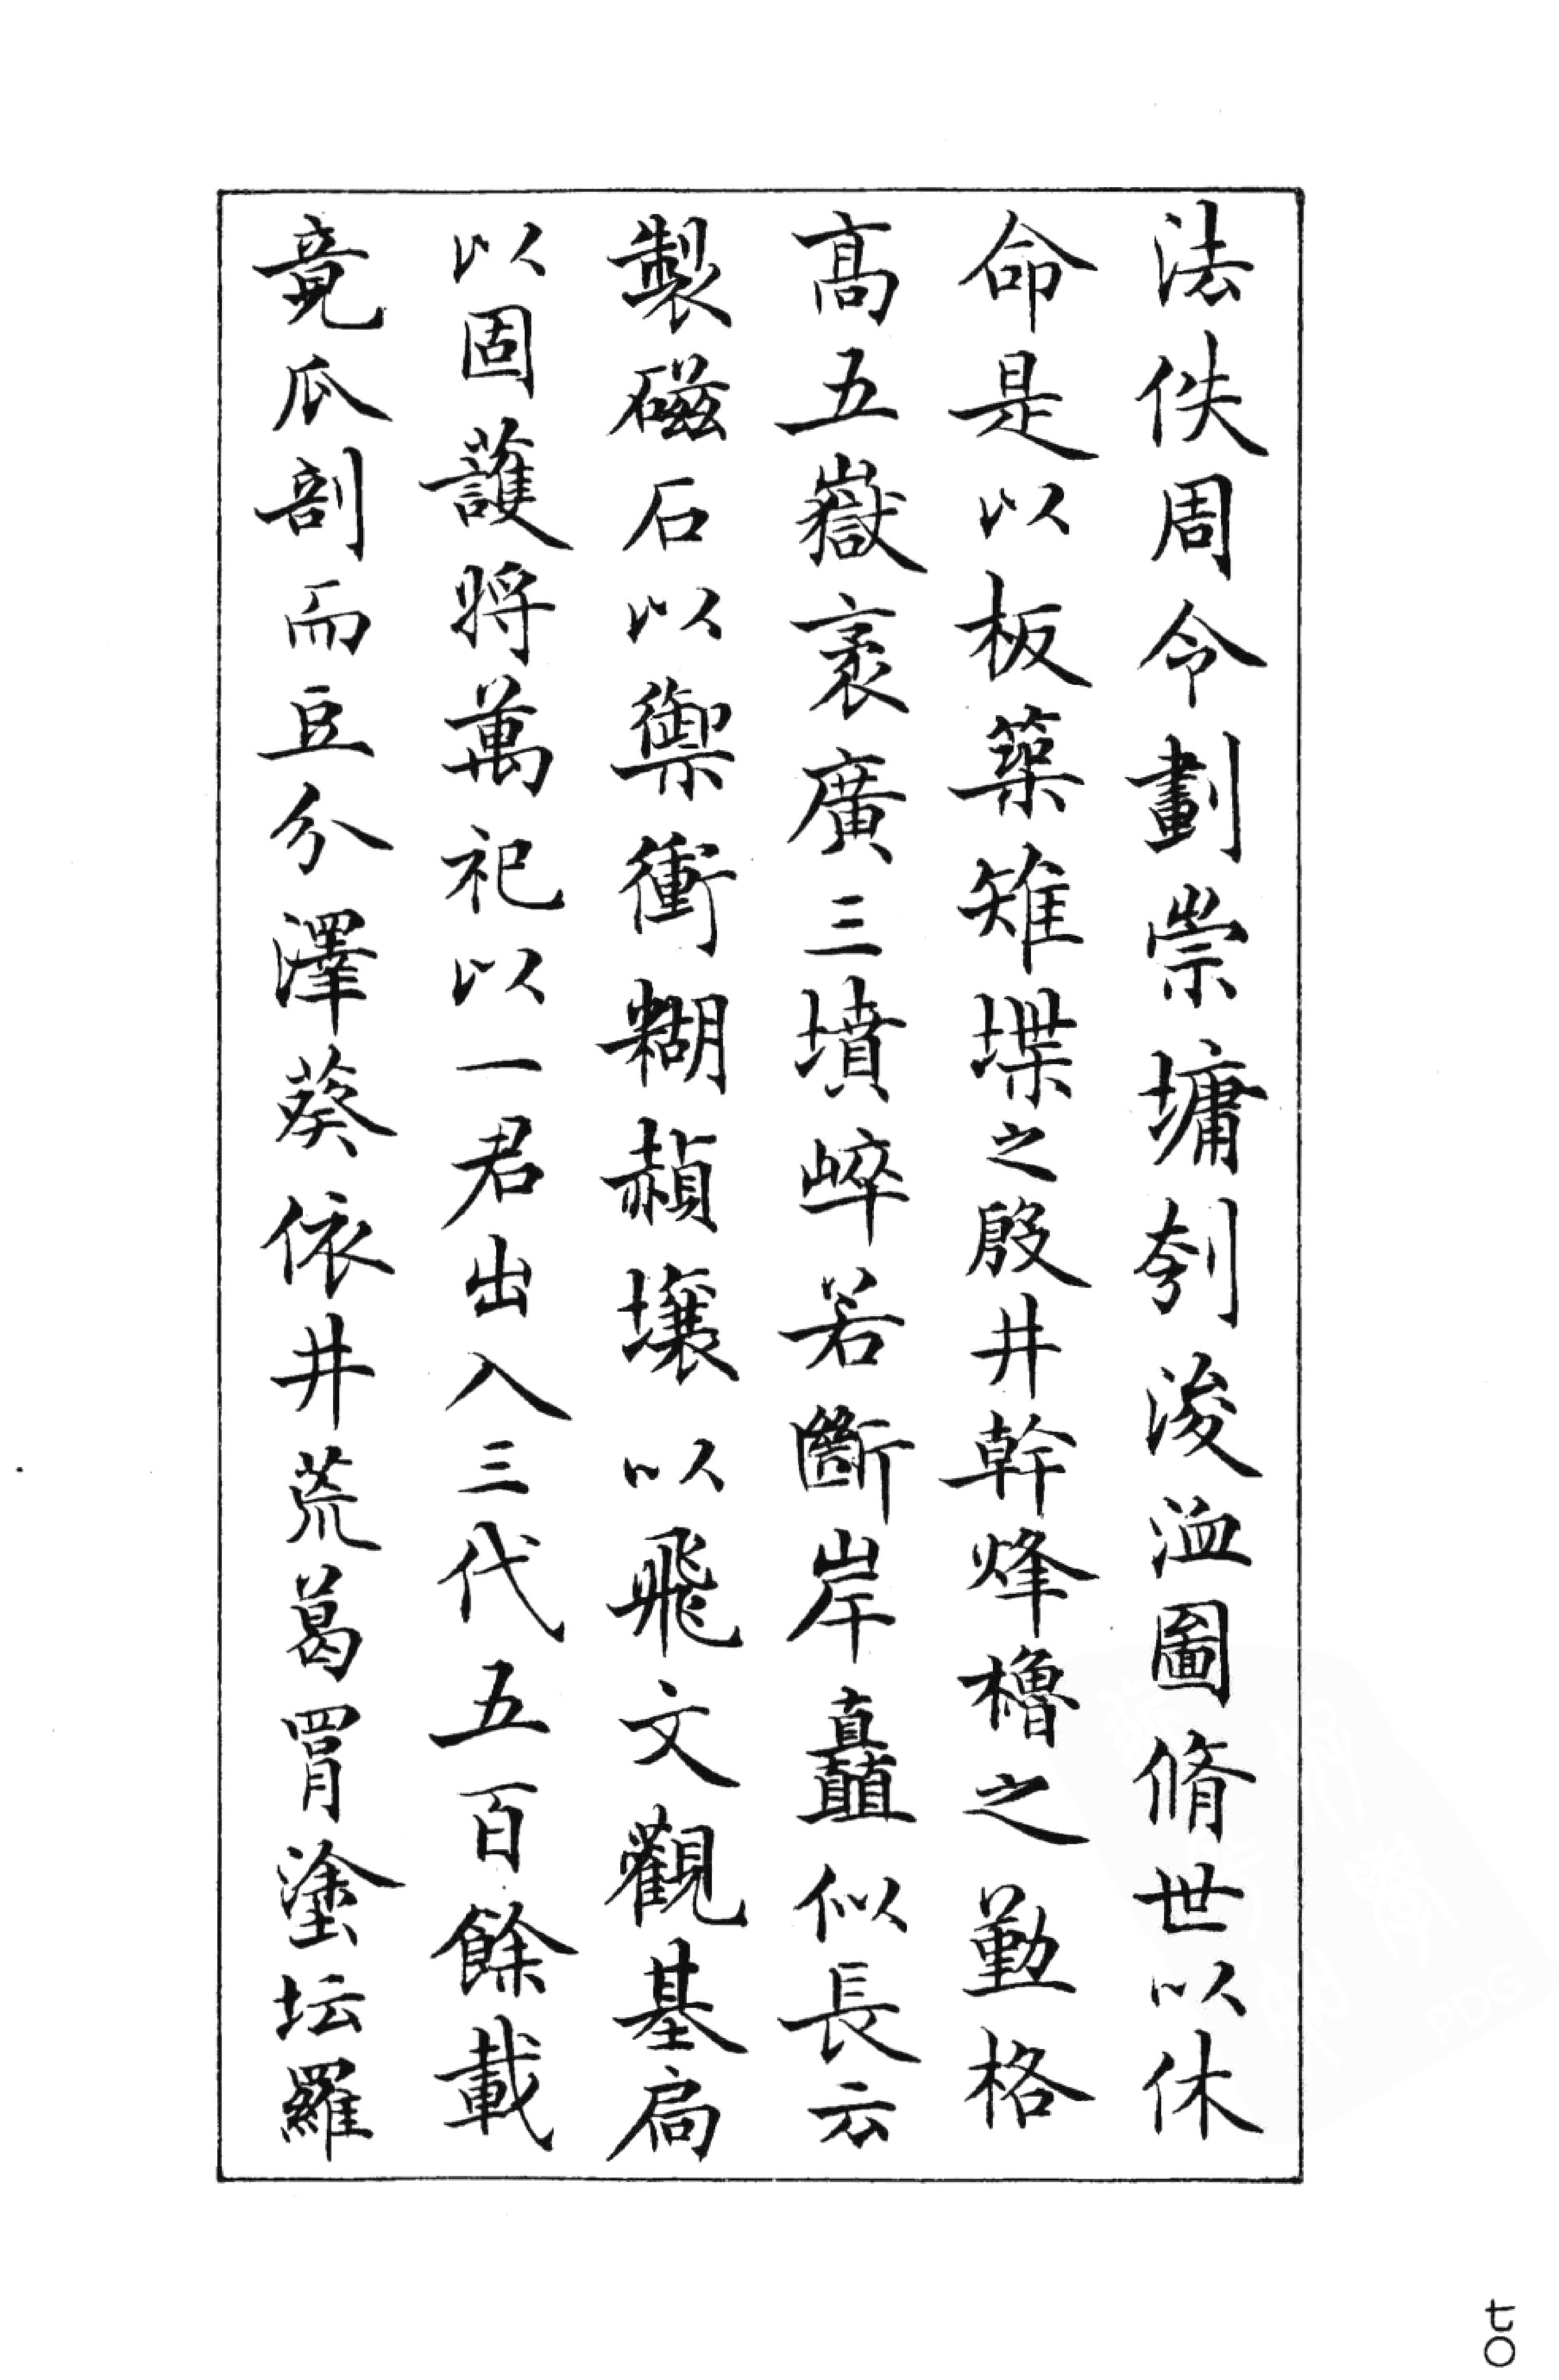 法佚周令劃崇墉刳浚洫圖脩世以休
命是以板築雉堞之殷井幹烽櫓之勤格
高五嶽袤廣三墳崪若斷岸矗似長云
製磁石以禦衝糊赬壤以飛文觀基扃
以固護將萬祀以一君出入三代五百餘載
竟瓜剖而豆分澤葵依井荒葛罥塗坛羅
七〇